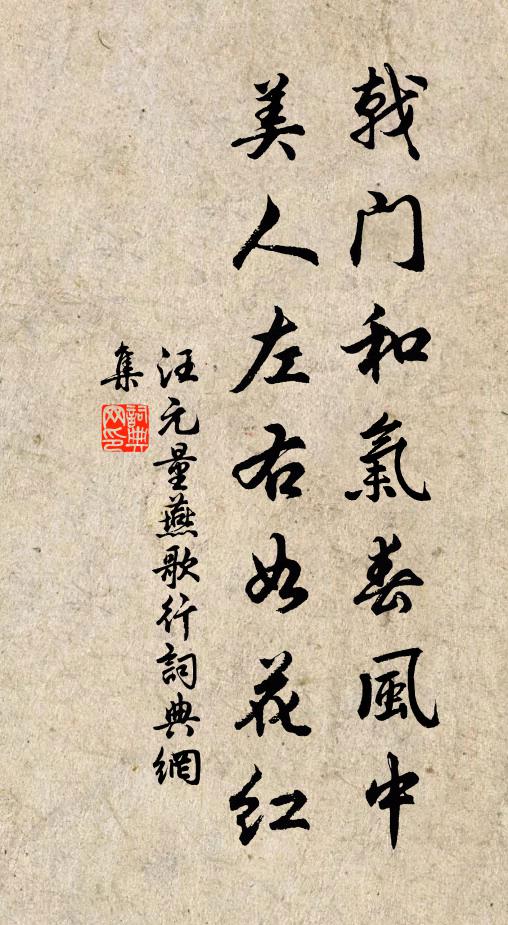 戟门和氣春風中
美人左右如花红
汪元量燕歌行詞典網
集
詞典网印